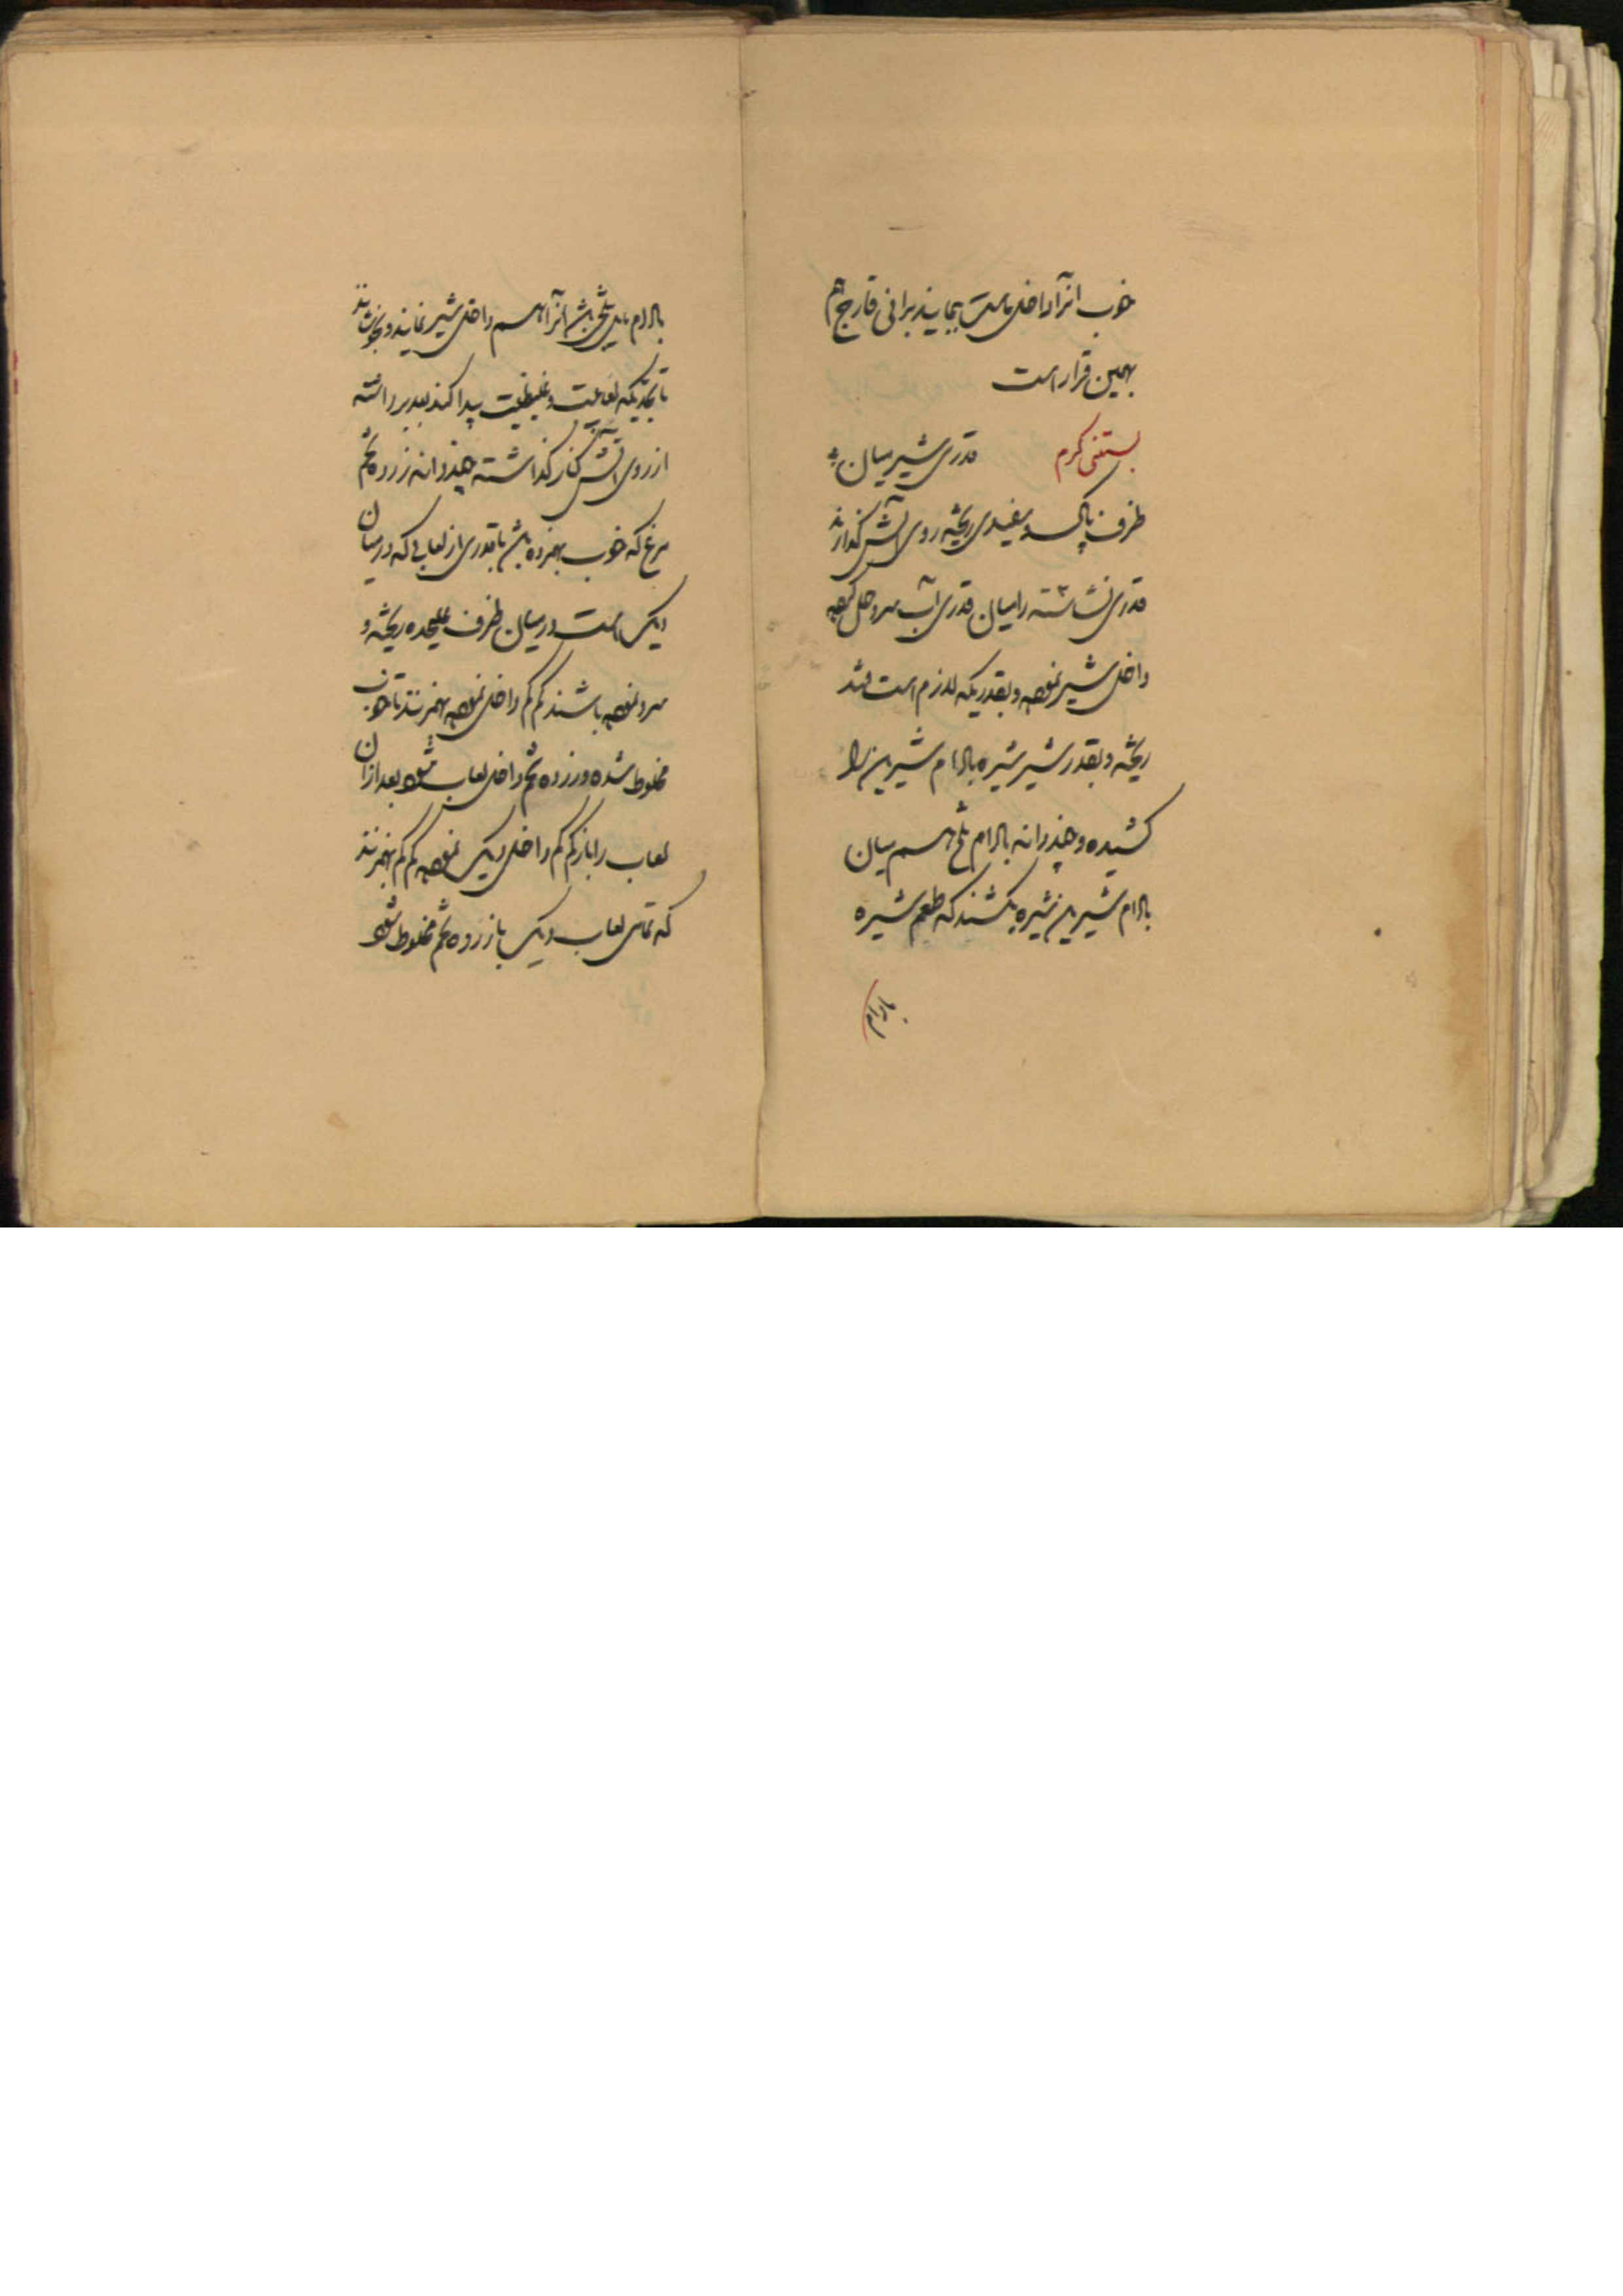 خوب انرا داخل ماست بنمایند برانی قارچ هم
بهمین قرار است
بستنی کرم قدری شیر میان
ظرف پاک سفیدی ریخته روی آتش گذارند
قدری نشاسته را میان قدری آب سرد حل کرده
داخل شیر نموده و بقدریکه لازم است قند
ریخته و بقدر شیر شیره بادام شیرین را
کشیده و چند دانه بادام تلخ هم میان
بادام شیرین شیره بکشند که طعم شیره
بادام
بادام مایل بتلخی باشد انرا هم داخل شیر نمایند و بجوشانند
تا بحدیکه لعابیت و غلیظیت پیدا کند بعد برداشته
از روی آتش کنار گذاشته چند دانه زرده تخم
مرغ که خوب بهمزده باشند با قدری از لعابی که در میان
دیک است در میان ظرف علیحده ریخته و
سرد نموده باشند کم کم داخل نموده بهمزنند تا خوب
مخلوط شده و زرده تخم داخل لعاب شود بعد از ان
لعاب را باز کم کم داخل دیک نموده کم کم بهمزنند
که تمامی لعاب دیک با زرده تخم مخلوط شود